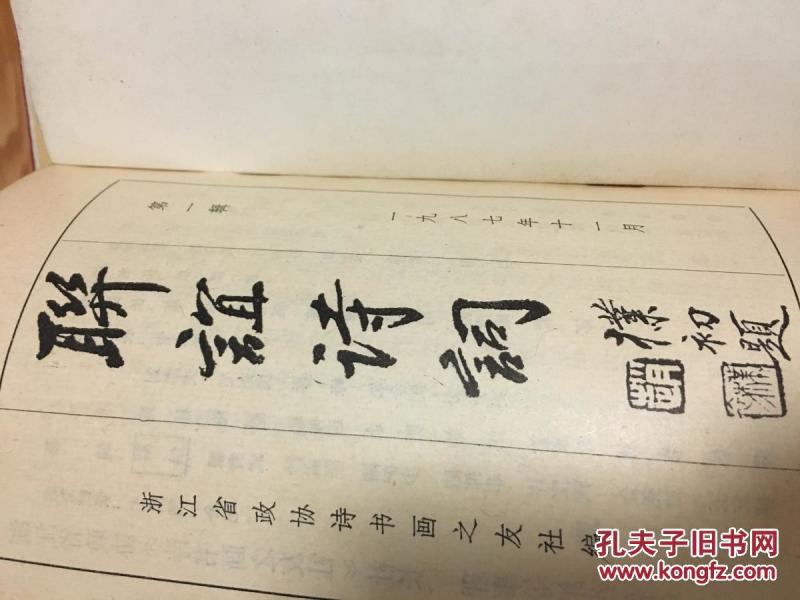 第一辑
一九八七年十一月
聯誼诗詞
樸初題
浙江省政协诗书画之友社编
孔夫子旧书网
www.kongfz.com